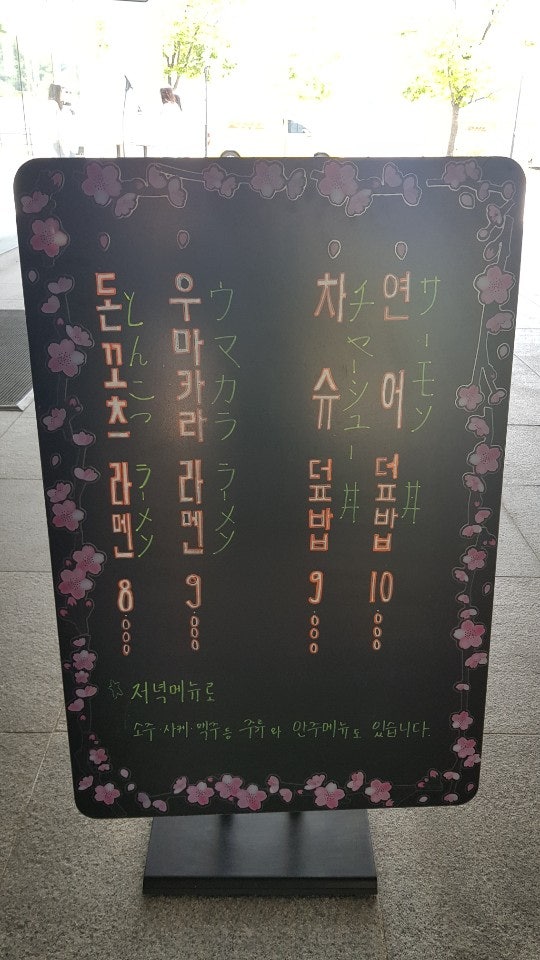 연어 덮밥 10.000
サーモン丼
차슈 덮밥 9.000
チャーシュー丼
우마카라 라멘 9.000
ウマカララーメン
돈꼬츠 라멘 8.000
とんこつラーメン
☆ 저녁메뉴로
소주·사케·맥주등 주류와 안주메뉴도 있습니다.